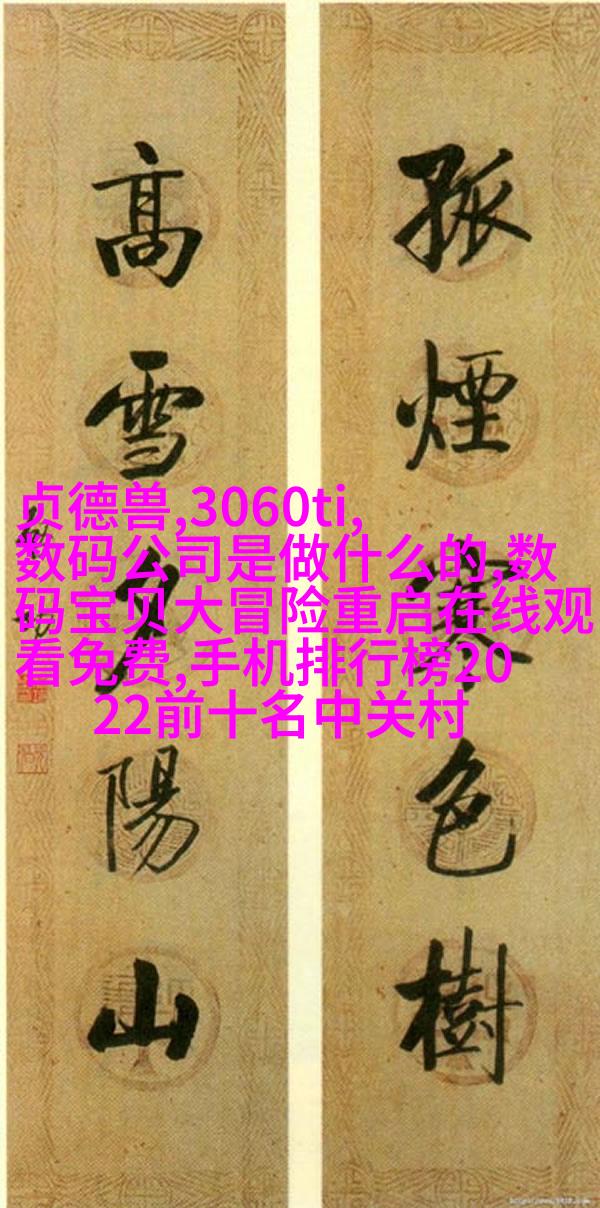 孤煙寒色樹
高雪夕陽山
贞德兽,3060ti,
数码公司是做什么的,数
码宝贝大冒险重启在线观
看免费,手机排行榜20
22前十名中关村